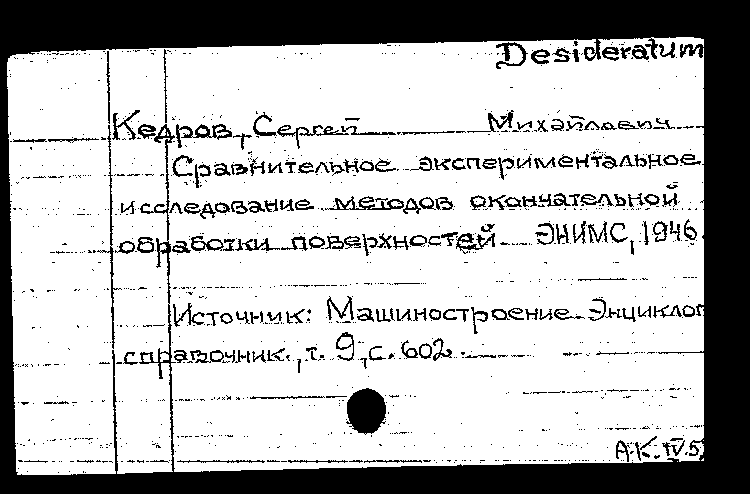 Desideratum
Кедров, Сергей Михайлович
Сравнительное экспериментальное
исследование методов окончательной
обработки поверхностей. ЭНИМС, 1946.
Источник: Машиностроение. Энциклоп
справочник., т. 9, с. 602.
А.К. IV.5